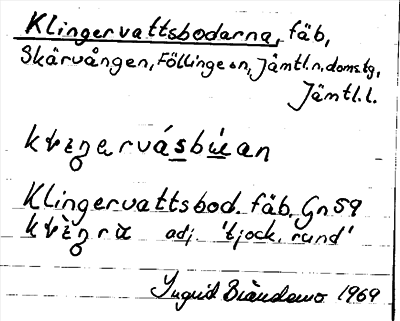 Klingervattsbodarna, fäb,
Skärvången, Föllinge sn, Jämtl.n.doms.tg,
Jämtl.l.
Klingervattsbod. fäb. Gn 59
adj. 'tjock, rund'
Ingrid 1969